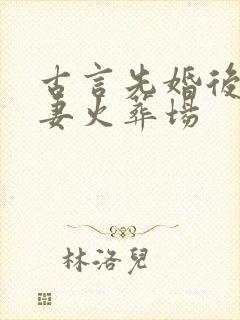 古言先婚後
妻火葬場
林洛兒